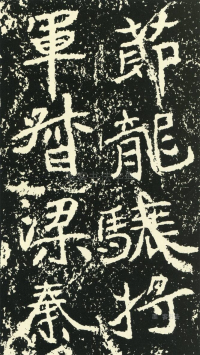 節龍驤將
軍督梁秦